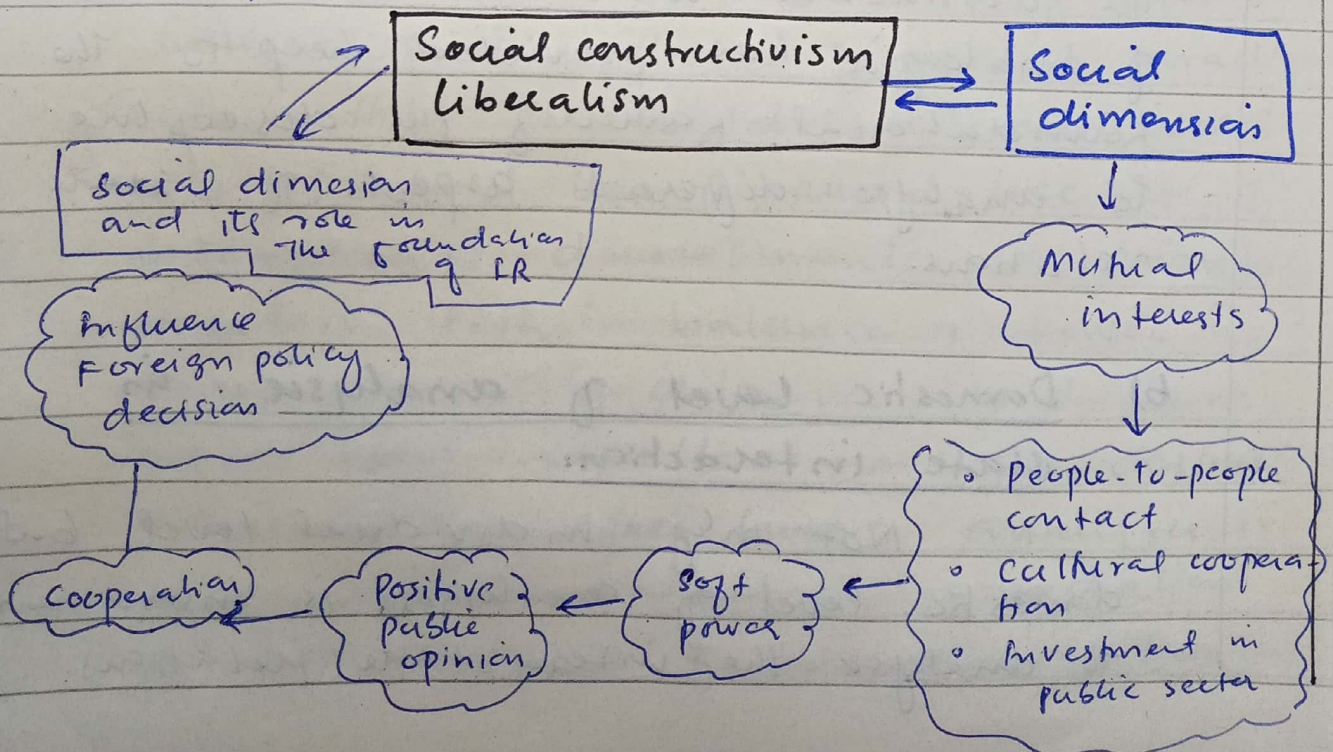 Social constructivism
liberalism
Social
dimension
Social dimesion
and its role in
the foundation
of IR
Mutual
interests
influence
Foreign policy
decision
People-to-people
contact
Cultural coopera-
tion
Investment in
public sector
Soft
power
Positive
public
opinion
Cooperation